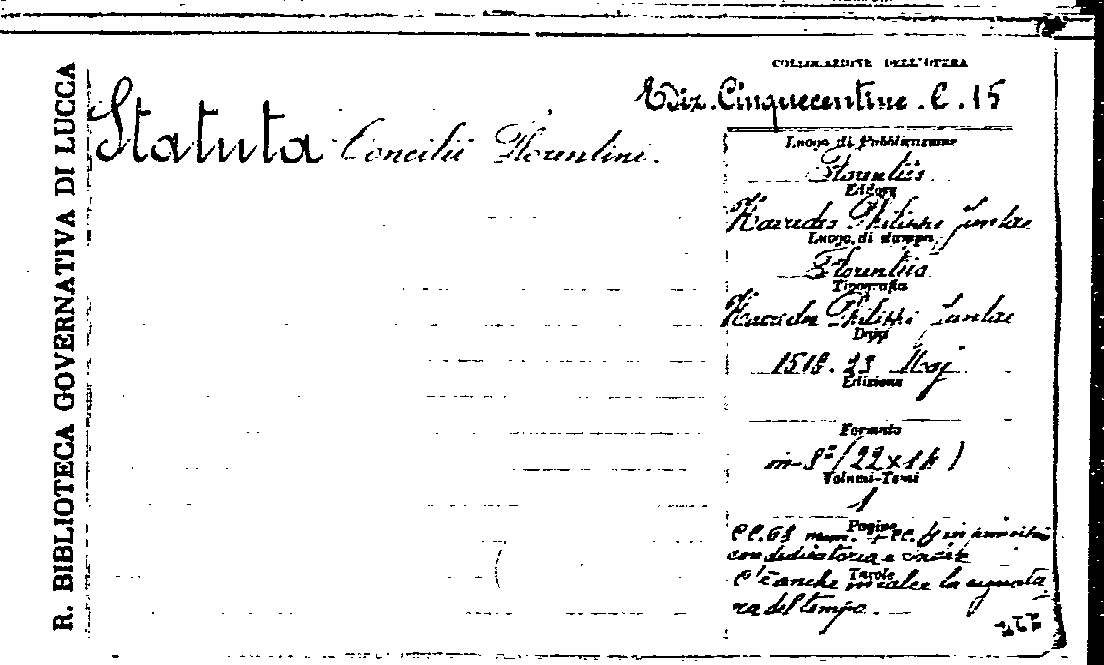 R. BIBLIOTECA GOVERNATIVA DI LUCCA
COLLOCAZIONE DELL'OPERA
Ediz. Cinquecentine. C. 15
Statuta Concilii Florentini.
Luogo di Pubblicazione
Florentiis
Editore
Haeredes Philippi Juntae
Luogo di stampa
Florentiis
Tipografia
Haeredes Philippi Juntae
Data
1518. 23 Maj
Edizione
Formato
in-8° (22x14)
Volumi-Tomi
1
Pagine
CC. 68 num. + CC. in principio
con dedicatoria e
Tavole
C'è anche in calce la segnatu
ra del tempo.